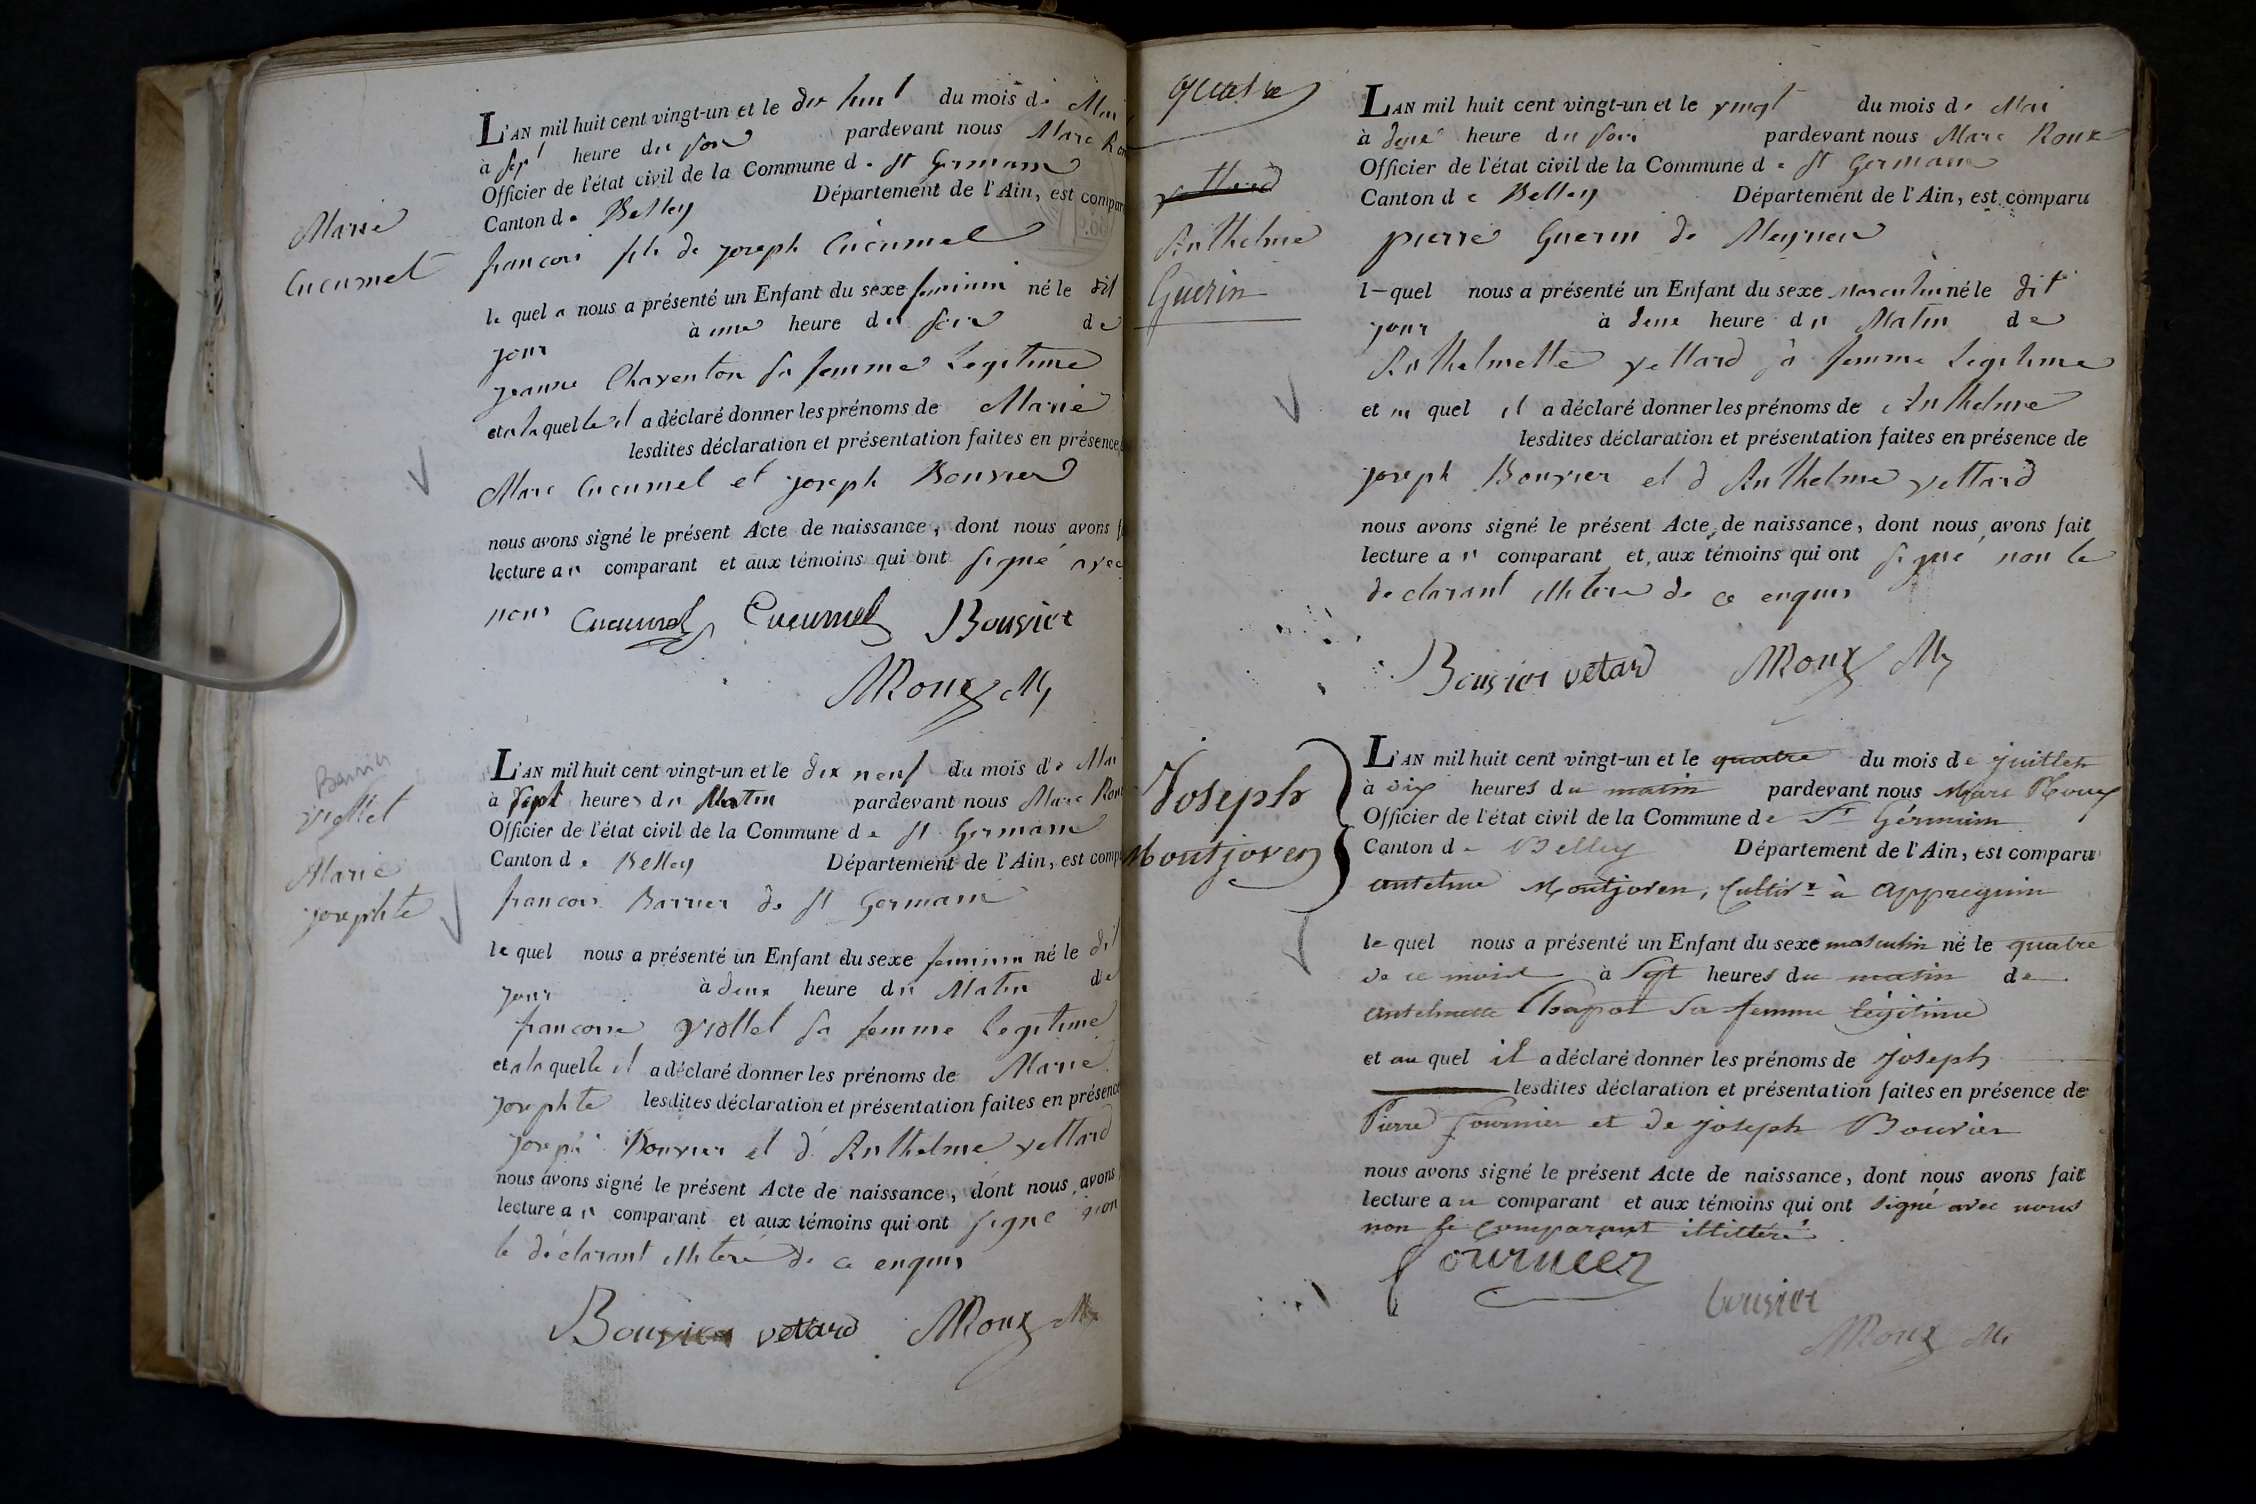 Marie
Cucumel
L'AN mil huit cent vingt-un et le dix huit du mois de Mai
à sept heure du soir pardevant nous Marc Rou
Officier de l'état civil de la Commune de St Germain
Canton de Belley Département de l'Ain, est compar
francois fils de joseph Cucumel
le quel a nous a présenté un Enfant du sexe feminin né le dit
jour à une heure du soir de
jeanne Charenton sa femme Legitime
et a la quelle il a déclaré donner les prénoms de Marie
lesdites déclaration et présentation faites en présence
Marc Cucumel et joseph Bouvier
nous avons signé le présent Acte de naissance, dont nous avons f
lecture au comparant et aux témoins qui ont signé avec
nous Cucumel Cucumel Bouvier
MRoux M
Barrier
viollet
Marie
josephte
L'AN mil huit cent vingt-un et le dix neuf du mois de Mai
à sept heures du Matin pardevant nous Marc Rou
Officier de l'état civil de la Commune de St Germain
Canton de Belley Département de l'Ain, est comp
francois Barrier de St Germain
le quel nous a présenté un Enfant du sexe feminin né le dit
jour à deux heure du Matin de
francoise viollet sa femme Legitime
et a la quelle il a déclaré donner les prénoms de Marie
josephte lesdites déclaration et présentation faites en présence
joseph Bouvier et d'Anthelme vettard
nous avons signé le présent Acte de naissance, dont nous avons
lecture au comparant et aux témoins qui ont signé non
le déclarant illiteré de ce enquis
Bouvier vettard MRoux M
quatre
vettard
Anthelme
Guerin
LAN mil huit cent vingt-un et le vingt du mois de Mai
à deux heure du soir pardevant nous Marc Roux
Officier de l'état civil de la Commune de St Germain
Canton de Belley Département de l'Ain, est comparu
pierre Guerin de Meyrieu
l-quel nous a présenté un Enfant du sexe Masculin né le dit
jour à deux heure du Matin de
Anthelmette vettard sa femme Legitime
et au quel il a déclaré donner les prénoms de Anthelme
lesdites déclaration et présentation faites en présence de
joseph Bouvier et d Anthelme vettard
nous avons signé le présent Acte de naissance, dont nous avons fait
lecture au comparant et aux témoins qui ont signé non le
declarant illiteré de ce enquis
Bouvier vetard MRoux M
Joseph
Montjoven
L'AN mil huit cent vingt-un et le quatre du mois de juillet
à dix heures du matin pardevant nous Marc Roux
Officier de l'état civil de la Commune de St Gérmain
Canton de Belley Département de l'Ain, est comparu
antelme Montjoven, Cultivr à Appregnin
le quel nous a présenté un Enfant du sexe masculin né le quatre
de ce mois à Sept heures du matin de
antelmette Chapot sa femme légitime
et au quel il a déclaré donner les prénoms de joseph
lesdites déclaration et présentation faites en présence de
Pierre fournier et de joseph Bouvier
nous avons signé le présent Acte de naissance, dont nous avons fait
lecture au comparant et aux témoins qui ont signé avec nous
non le Comparant illittéré
fournier
bouvier
MRoux M